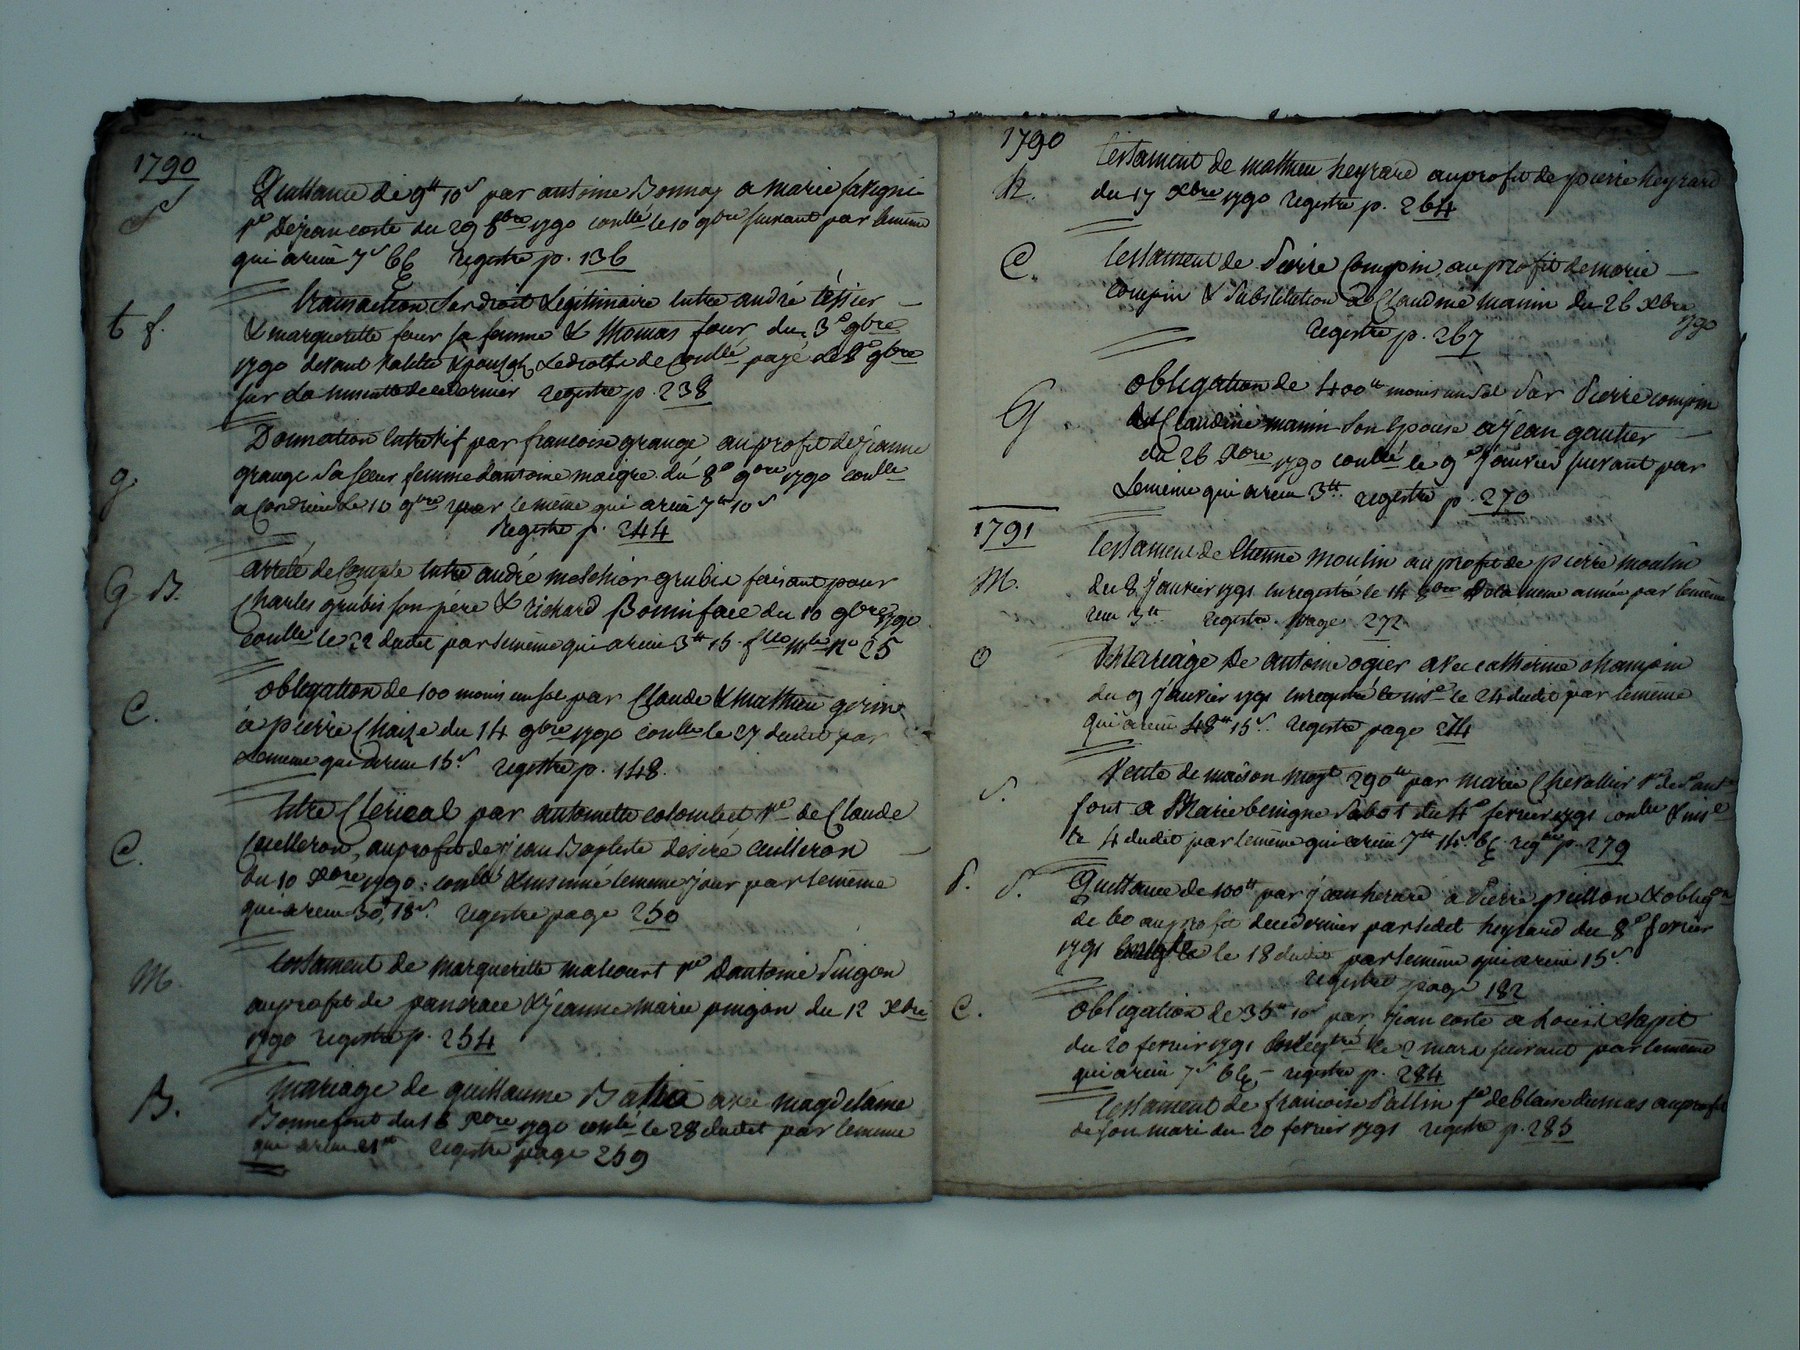 1790
S Quittance de 9tt 10s par antoine Bonnay a marie favigni
ve De jean coste du 29 8bre 1790 conllé le 10 9bre suivant par lemême
qui a recu 7s 6d registre p. 136
transaction sur droit Legitimaire entre andré téssier
t f. & marguerette four sa femme & thomas four du 3e 9bre
1790 devant notte & Ledroits de Conllé payé le 8e 9bre
sur la minutte de ce dernier registre p. 238
Donnation entrevif par francoise grange au profit de jeanne
g grange sa soeur femme dantoine maigre du 8e 9bre 1790 conllé
a Condrieu le 10 9bre par le même qui a recu 7tt 10s
registre p. 244
arrêté de Compte entre andré melchior grubis faisant pour
G B. Charles grubis son père & richard Bonniface du 10 9bre 1790
conllé le 22 dudit par lemême qui a recu 3tt 15 no 25
obligation de 100 moins un sol par Claude & mathieu gerin
C. à pierre Chaize du 14 9bre 1790 conllé le 27 dudit par
Lemême qui a recu 15s registre p. 148.
titre Clerical par antoinette colombet ve de Claude
C. Cuilleron, au profit de jean Baptiste desiré cuilleron
du 10 Xbre 1790: conllé & insinué lemême jour par lemême
qui a recu 30tt 18s. registre page 250
testament de marguerette malcourt ve Dantoine pingon
M. au profit de pancrace & jeanne marie pingon du 12 Xbre
1790 registre p. 254
mariage de guillaume Batia avec magdelaine
B. Bonnefont du 16 Xbre 1790 conllé le 28 dudit par lemême
qui a recu registre page 259
1790
testament de mathieu heyrard au profit de pierre heyrard
h. du 17 Xbre 1790 registre p. 264
testament de Pierre Compin, au profit de marie
C. compin & substitution a Claudine manin du 26 Xbre
1790
registre p. 267
obligation de 400tt moins un sol par Pierre compin
G & Claudine manin son epouse a jean gautier
du 26 Xbre 1790 conllé le 9e janvier suivant par
Lemême qui a recu 3tt registre p. 270
1791
testament de Etienne moulin au profit de pierre moulin
M. du 8 janvier 1791 enregistré le 14 8bre de la même année par lemême
recu 3tt registre page 272
O Mariage de antoine ogier avec catherine champin
du 9 janvier 1791 enregistré & insé le 24 dudit par lemême
qui a recu 48tt 15s. registre page 274
S. Vente de maison moyt 290tt par marie Chevallier ve de
font a Marie benigne Sabot du 4e fevrier 1791 conllé & insé
le 4 dudit par lemême qui a recu 7tt 14s. 6d regre p. 279
P. P. Quittance de 100tt par jean herard a Pierre peillon & oblign
de 60 au profit de ce dernier par ledit heyrard du 8e fevrier
1791 le 18 dudit par lemême qui a recu 15s.
registre page 182
C. obligation de 35tt 10s par jean coste a
du 20 fevrier 1791 enregtré le 2 mars suivant par lemême
qui a recu 7s 6d, registre p. 284
testament de francoise Pallin fe de blaise dumas au profit
de son mari du 20 fevrier 1791 registre p. 285